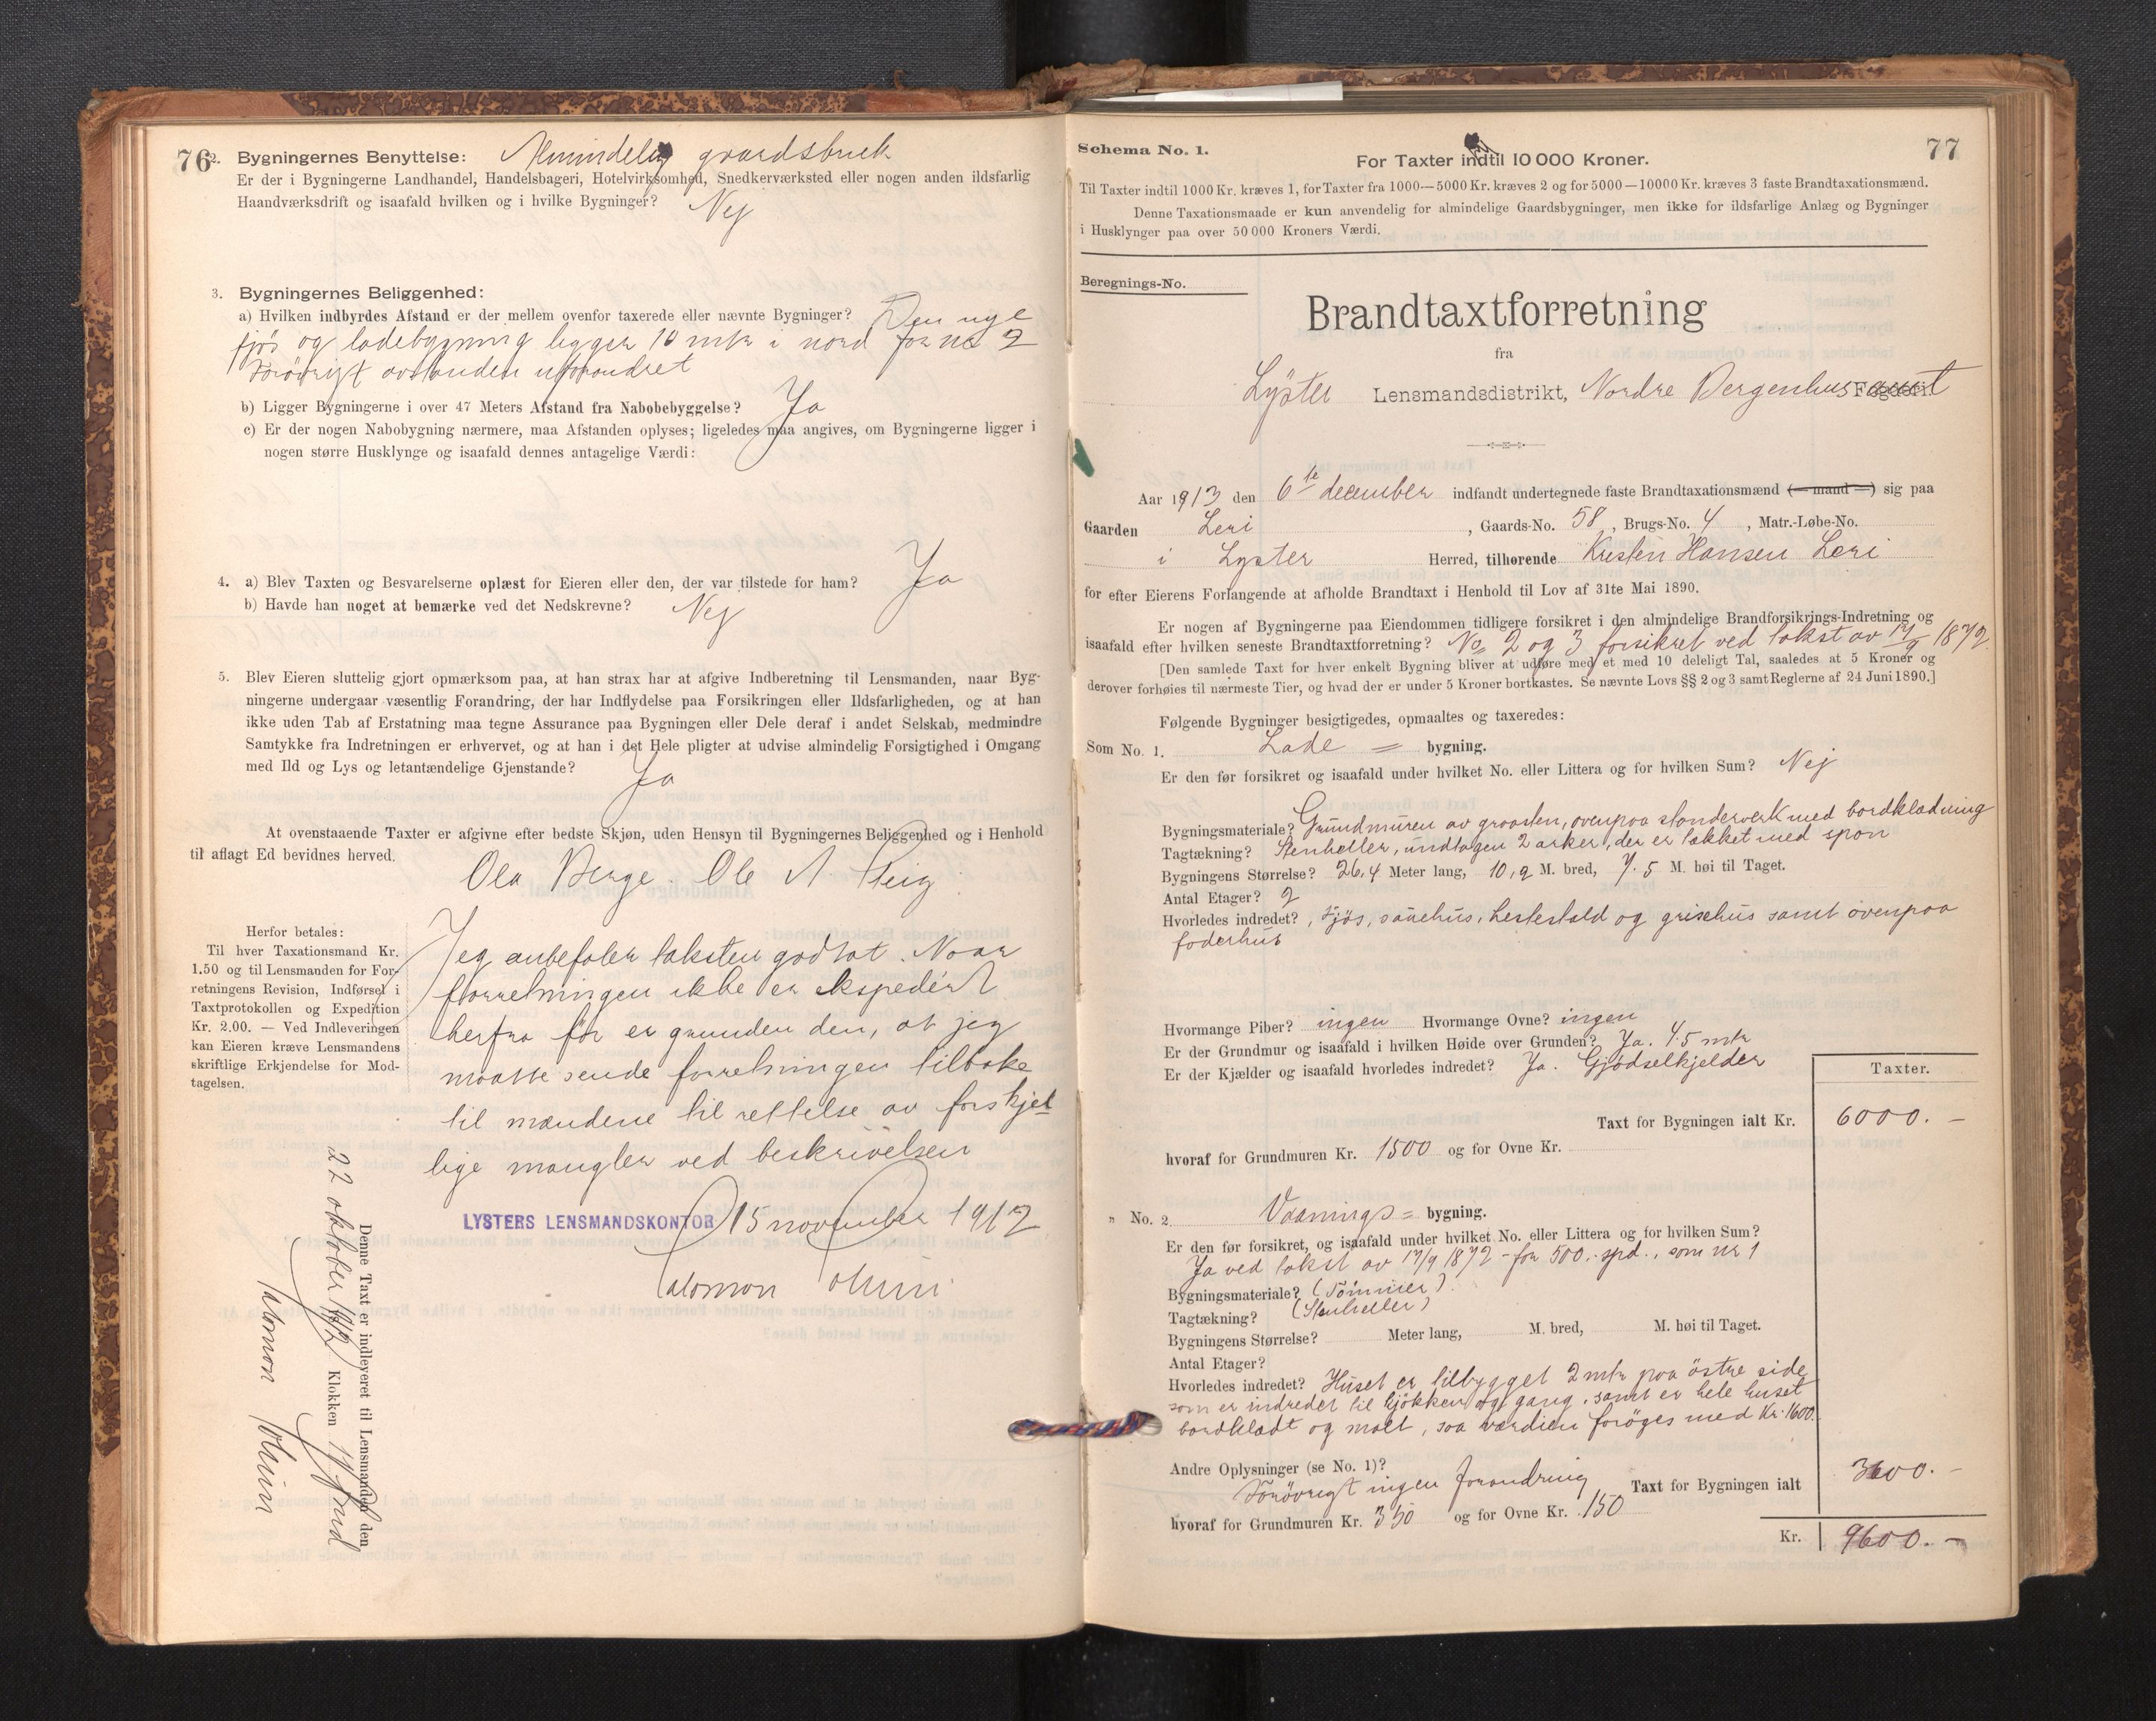 76
2. Bygningernes Benyttelse: Almindelig gaardsbruk
Er der i Bygningerne Landhandel, Handelsbageri, Hotelvirksomhed, Snedkerværksted eller nogen anden ildsfarlig
Haandværksdrift og isaafald hvilken og i hvilke Bygninger? Nej
3. Bygningernes Beliggenhed:
a) Hvilken indbyrdes Afstand er der mellem ovenfor taxerede eller nævnte Bygninger? Den nye
fjøs og ladebygning ligger 10 mtr i nord for no 2
Forøvrigt avstanden uforandret
b) Ligger Bygningerne i over 47 Meters Afstand fra Nabobebyggelse? Ja
c) Er der nogen Nabobygning nærmere, maa Afstanden oplyses; ligeledes maa angives, om Bygningerne ligger i
nogen større Husklynge og isaafald dennes antagelige Værdi:
4. a) Blev Taxten og Besvarelserne oplæst for Eieren eller den, der var tilstede for ham? Ja
b) Havde han noget at bemærke ved det Nedskrevne? Nej
5. Blev Eieren sluttelig gjort opmærksom paa, at han strax har at afgive Indberetning til Lensmanden, naar Byg-
ningerne undergaar væsentlig Forandring, der har Indflydelse paa Forsikringen eller Ildsfarligheden, og at han
ikke uden Tab af Erstatning maa tegne Assurance paa Bygningen eller Dele deraf i andet Selskab, medmindre
Samtykke fra Indretningen er erhvervet, og at han i det Hele pligter at udvise almindelig Forsigtighed i Omgang
med Ild og Lys og letantændelige Gjenstande? Ja
At ovenstaaende Taxter er afgivne efter bedste Skjøn, uden Hensyn til Bygningernes Beliggenhed og i Henhold
til aflagt Ed bevidnes herved.
Ola Berge. Ole A.
Herfor betales:
Til hver Taxationsmand Kr.
1.50 og til Lensmanden for For-
retningens Revision, Indførsel i
Taxtprotokollen og Expedition
Kr. 2.00. — Ved Indleveringen
kan Eieren kræve Lensmandens
skriftlige Erkjendelse for Mod-
tagelsen.
Jeg anbefaler taksten godtat. Naar
forretningen ikke er ekspedert
herfra før er grunden den, at jeg
maatte sende forretningen tilbake
til mændene til rettelse av forskjel
lige mangler ved beskrivelsen
LYSTERS LENSMANDSKONTOR 15 november 1912
Salomon
Denne Taxt er indleveret til Lensmanden den
22 oktober 1912 Klokken
Salomon
77
Schema No. 1.
For Taxter indtil 10 000 Kroner.
Til Taxter indtil 1000 Kr. kræves 1, for Taxter fra 1000—5000 Kr. kræves 2 og for 5000—10000 Kr. kræves 3 faste Brandtaxationsmænd.
Denne Taxationsmaade er kun anvendelig for almindelige Gaardsbygninger, men ikke for ildsfarlige Anlæg og Bygninger
i Husklynger paa over 50 000 Kroners Værdi.
Beregnings-No.
Brandtaxtforretning
fra
Lyster Lensmandsdistrikt, Nordre Bergenhus amt Fogderi.
Aar 1913 den 6te december indfandt undertegnede faste Brandtaxationsmænd (— mand —) sig paa
Gaarden Leri, Gaards-No. 58, Brugs-No. 4, Matr.-Løbe-No.
i Lyster Herred, tilhørende Kristen Hansen Leri
for efter Eierens Forlangende at afholde Brandtaxt i Henhold til Lov af 31te Mai 1890.
Er nogen af Bygningerne paa Eiendommen tidligere forsikret i den almindelige Brandforsikrings-Indretning og
isaafald efter hvilken seneste Brandtaxtforretning? No 2 og 3 forsikret ved takst av 17/9 1872
[Den samlede Taxt for hver enkelt Bygning bliver at udføre med et med 10 deleligt Tal, saaledes at 5 Kroner og
derover forhøies til nærmeste Tier, og hvad der er under 5 Kroner bortkastes. Se nævnte Lovs §§ 2 og 3 samt Reglerne af 24 Juni 1890.]
Følgende Bygninger besigtigedes, opmaaltes og taxeredes:
Som No. 1. Lade = bygning.
Er den før forsikret og isaafald under hvilket No. eller Littera og for hvilken Sum? Nej
Bygningsmateriale? Grundmuren av graasten, ovenpaa standerverk med bordklædning
Tagtækning? Stenheller, undtagen 2 arker, der er tækket med spon
Bygningens Størrelse? 26,4 Meter lang, 10,2 M. bred, 7.5 M. høi til Taget.
Antal Etager? 2
Hvorledes indredet?, Fjøs, sauehus, hestestald og grisehus samt ovenpaa
foderhus
Hvormange Piber? ingen Hvormange Ovne? ingen
Er der Grundmur og isaafald i hvilken Høide over Grunden? Ja. 4.5 mtr
Er der Kjælder og isaafald hvorledes indredet? Ja. Gjødselkjelder
Taxter.
Taxt for Bygningen ialt Kr. 6000.—
hvoraf for Grundmuren Kr. 1500 og for Ovne Kr.
" No. 2. Vaanings= bygning.
Er den før forsikret, og isaafald under hvilket No. eller Littera og for hvilken Sum?
Ja ved takst av 17/9 1872 – for 500. spd., som nr 1
Bygningsmateriale? (Tømmer)
Tagtækning? (Stenheller)
Bygningens Størrelse? Meter lang, M. bred, M. høi til Taget.
Antal Etager?
Hvorledes indredet? Huset er tilbygget 2 mtr paa østre side
som er indredet til kjøkken og gang, samt er hele huset
bordklædt og malt, saa værdien forøges med Kr. 1600.
Andre Oplysninger (se No. 1)?
Forøvrigt ingen forandring Taxt for Bygningen ialt 3600.—
hvoraf for Grundmuren Kr. 350 og for Ovne Kr. 150
Kr. 9600.—